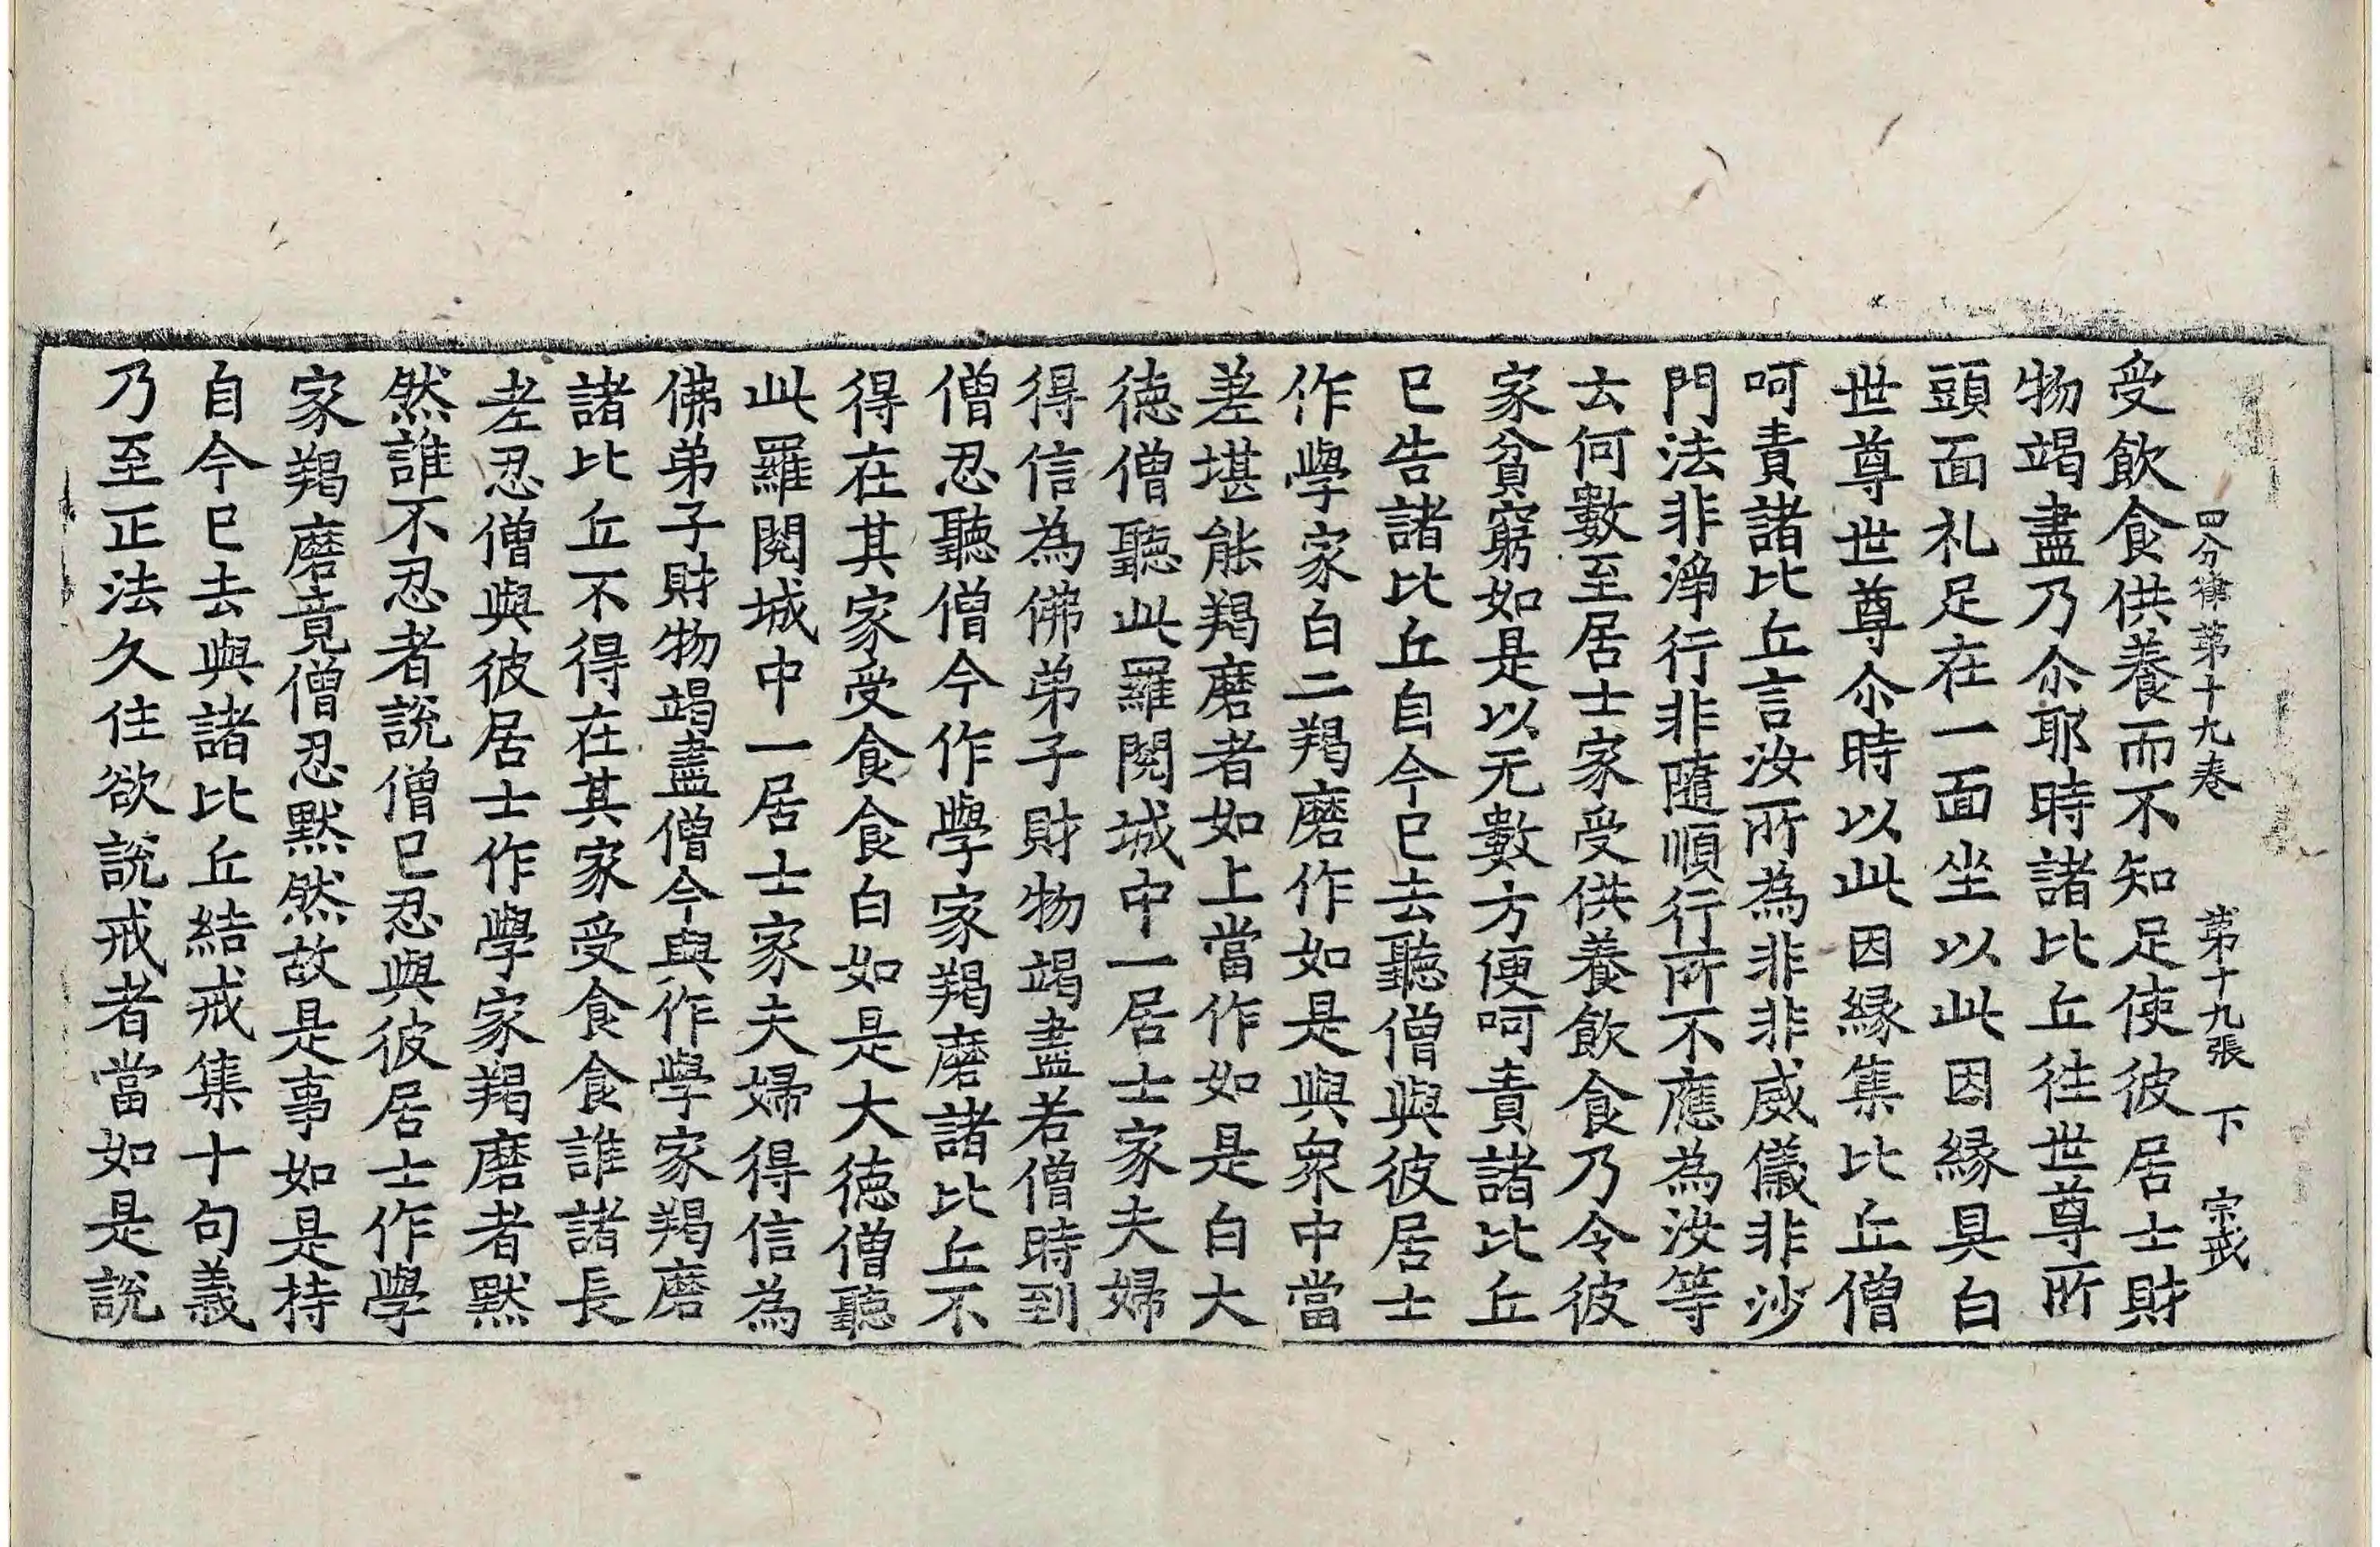 四分律第十九卷 第十九張 下 宗戒
受飲食供養而不知足使彼居士財
物竭盡乃尒耶時諸比丘往世尊所
頭面礼足在一面坐以此因緣具白
世尊世尊尒時以此因緣集比丘僧
呵責諸比丘言汝所為非非威儀非沙
門法非淨行非隨順行所不應為汝等
云何數至居士家受供養飲食乃令彼
家貧窮如是以无數方便呵責諸比丘
已告諸比丘自今已去聽僧與彼居士
作學家白二羯磨作如是與衆中當
差堪能羯磨者如上當作如是白大
德僧聽此羅閱城中一居士家夫婦
得信為佛弟子財物竭盡若僧時到
僧忍聽僧今作學家羯磨諸比丘不
得在其家受食食白如是大德僧聽
此羅閱城中一居士家夫婦得信為
佛弟子財物竭盡僧今與作學家羯磨
諸比丘不得在其家受食食誰諸長
老忍僧與彼居士作學家羯磨者默
然誰不忍者說僧已忍與彼居士作學
家羯磨竟僧忍默然故是事如是持
自今已去與諸比丘結戒集十句義
乃至正法久住欲說戒者當如是說